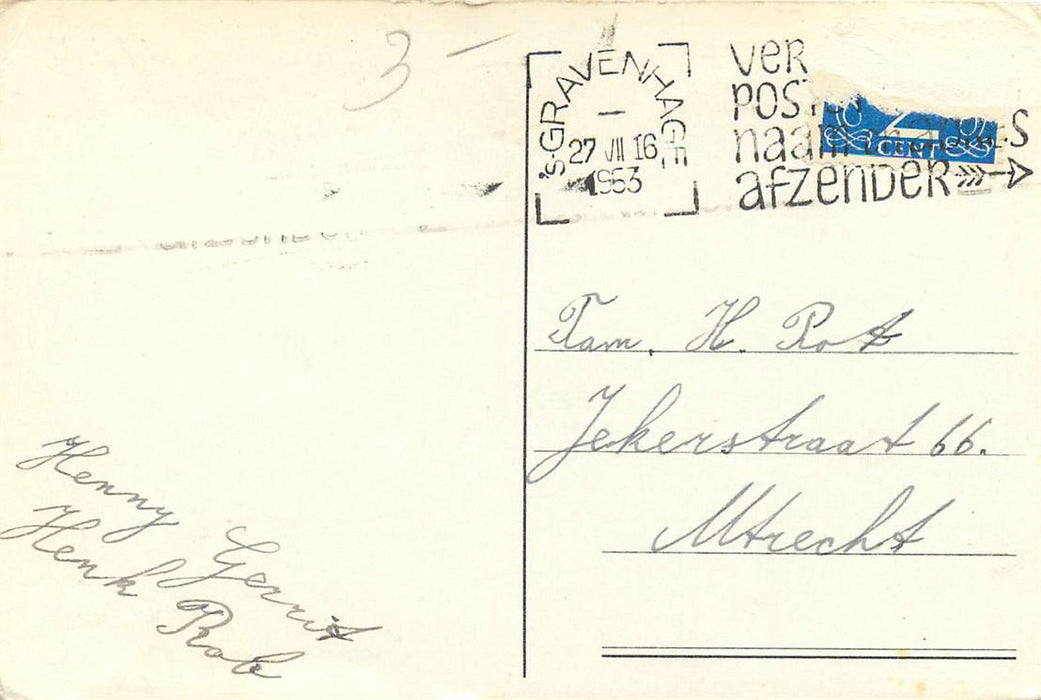 3 -
's-GRAVENHAGE
27 VII 16
1953
VER
POS
naam en adres
afzender
CENT
Fam. H. Rot
Jekerstraat 66.
Utrecht
Henny Gerrit
Henk Rob